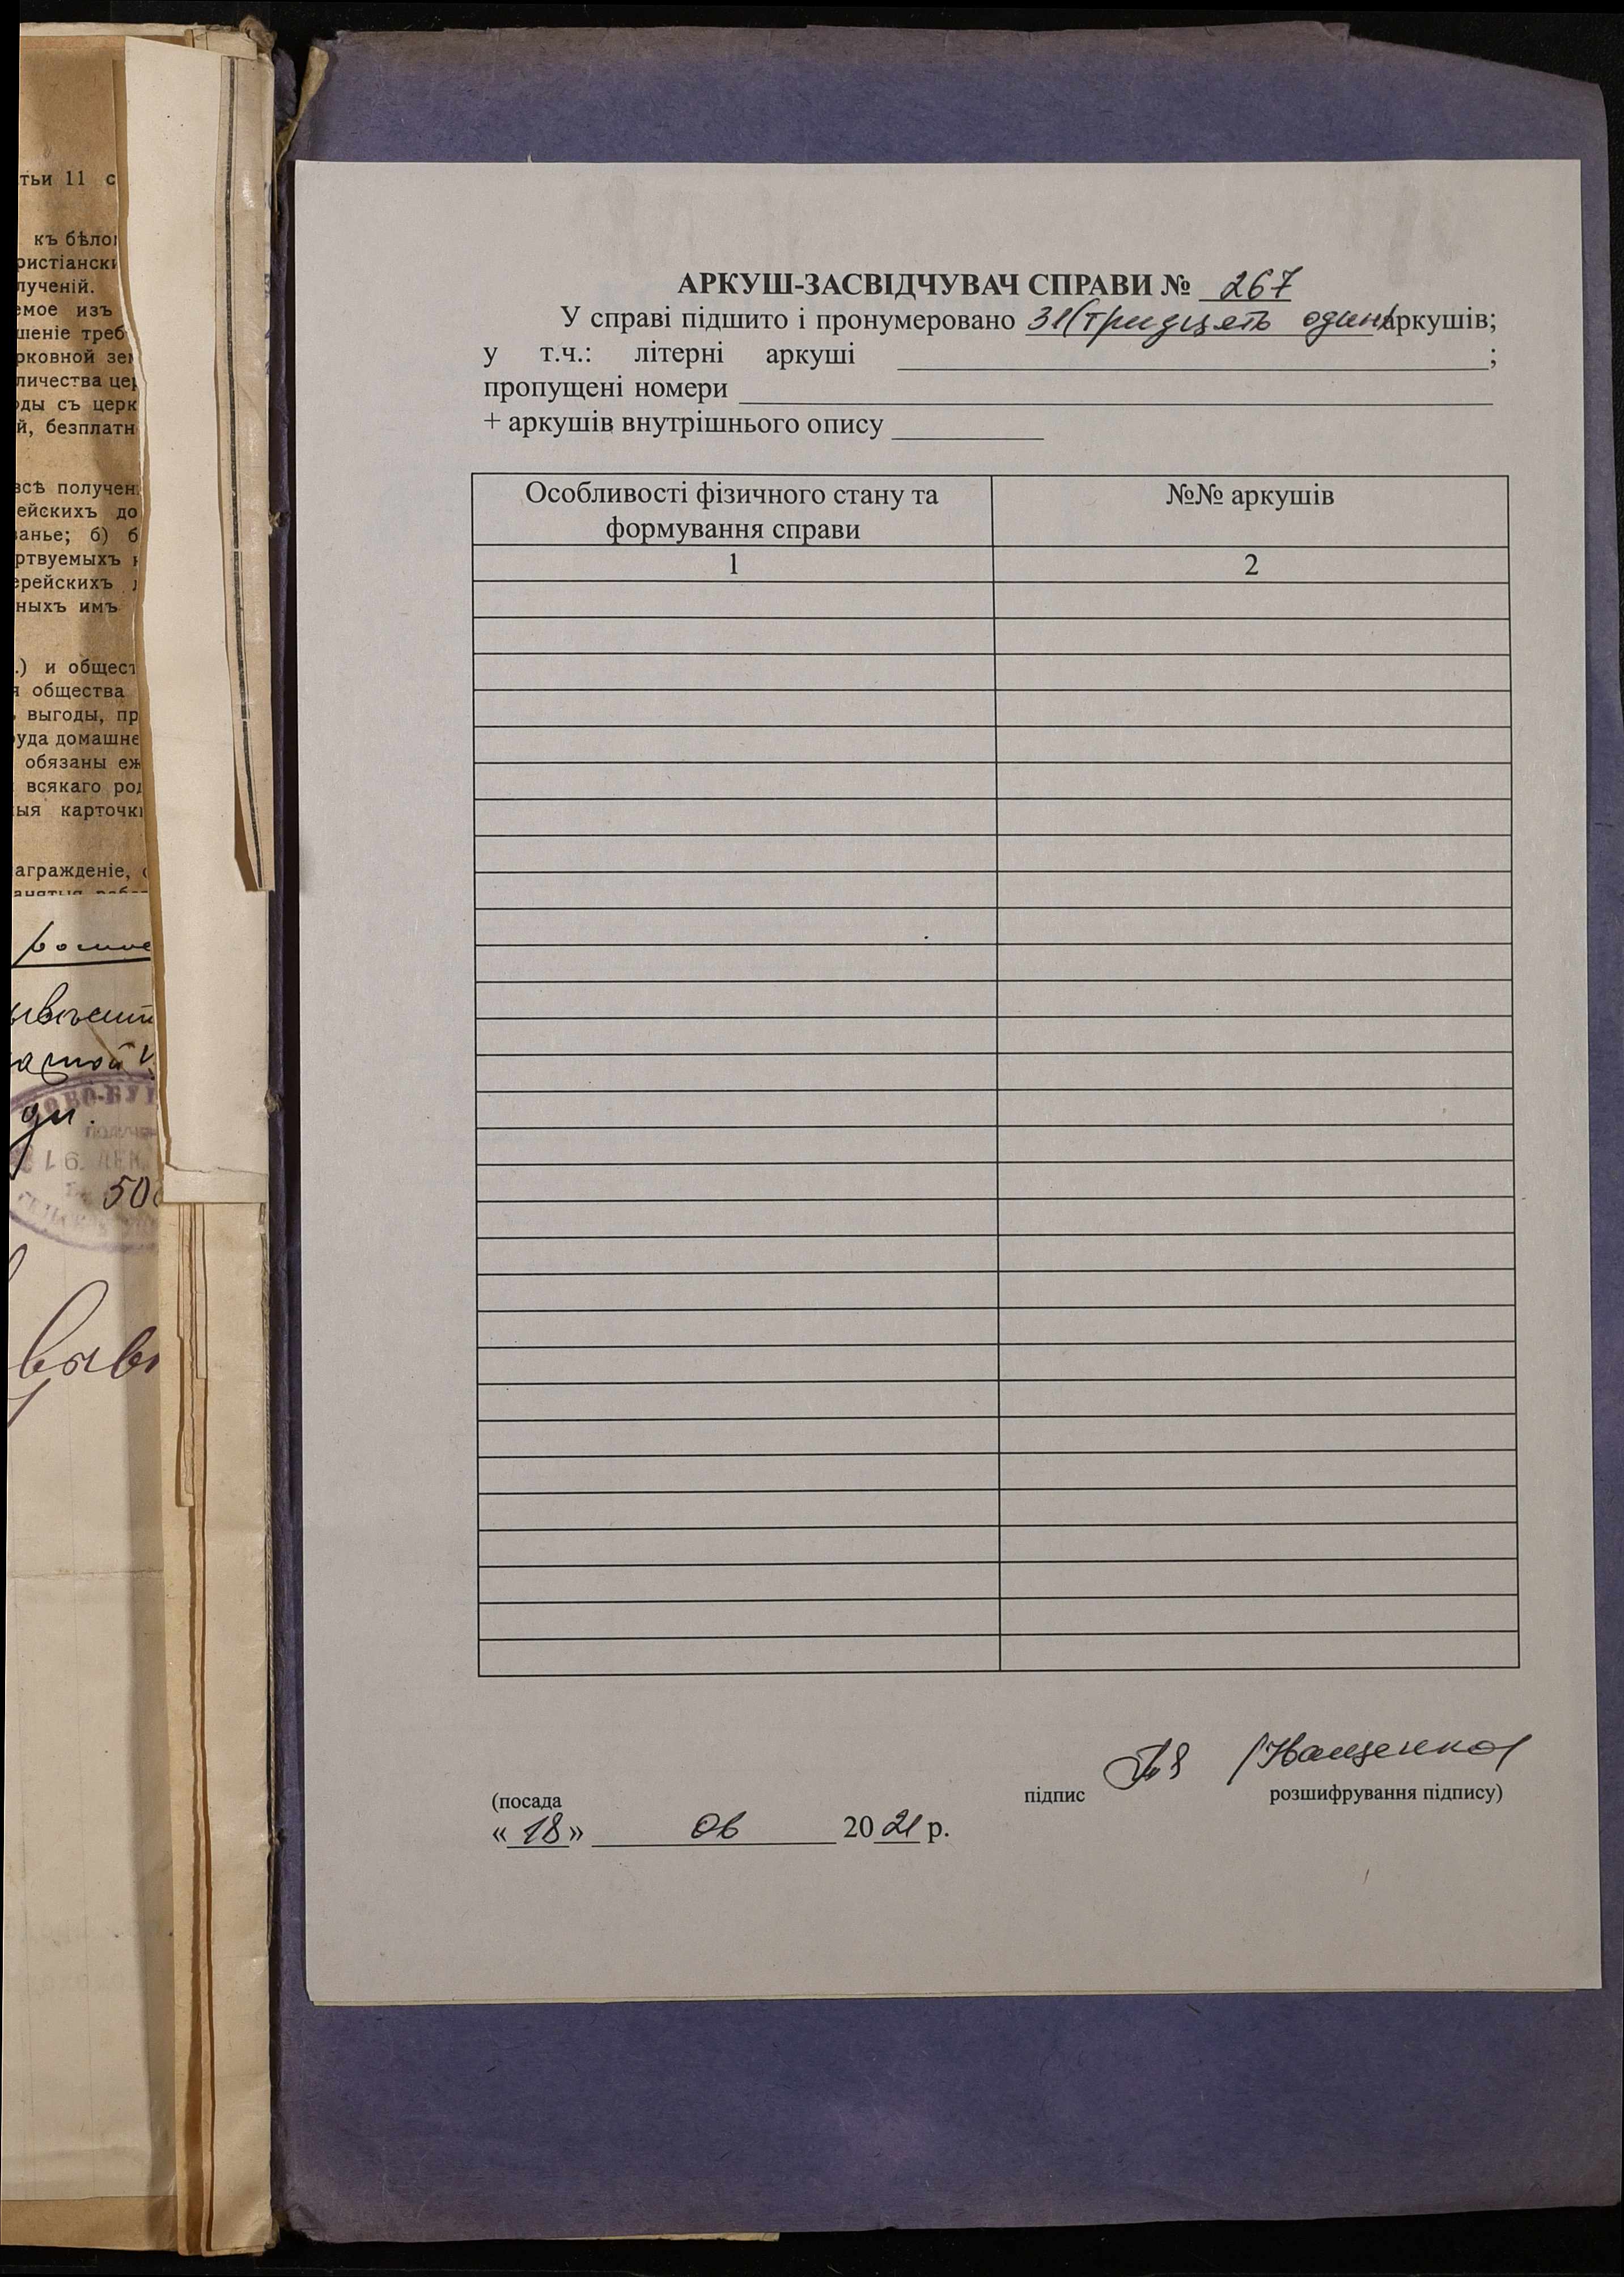 тьи 11 с
къ бѣло
ристіанск
лученій.
емое изъ
шеніе треб
рковной зе
личества це
ды съ церк
й, безплатн
всѣ получен
ейскихъ до
ванье; б) б
ртвуемыхъ
ерейскихъ
ныхъ имъ
.) и общест
я общества
выгоды, пр
уда домашне
обязаны еж
всякаго ро
ыя карточк
агражденіе,
ди.
ОВО-БУ
16. ДЕК.
50
АРКУШ-ЗАСВІДЧУВАЧ СПРАВИ № 267
У справі підшито і пронумеровано 31 (тридцять один) аркушів;
у т.ч.: літерні аркуші ;
пропущені номери
+ аркушів внутрішнього опису
Особливості фізичного стану та формування справи
№№ аркушів
1 2
(посада підпис розшифрування підпису)
«18» 06 2021 р.